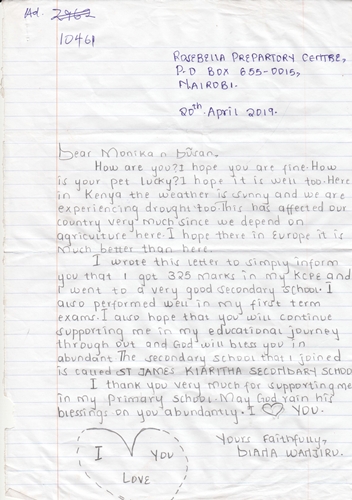 Ad. 2962
10461
ROSEBELLA PREPARTORY CENTRE,
P.O BOX 855-0015,
NAIROBI.
20th April 2019.
Dear Monika n Dusan.
How are you? I hope you are fine. How
is your pet lucky? I hope it is well too. Here
in Kenya the weather is sunny and we are
experiencing drought too. This has affected our
country very much since we depend on
agriculture here. I hope there in Europe it is
much better than here.
I wrote this letter to simply inform
you that I got 325 marks in my KCPE and
I went to a very good secondary school. I
also performed well in my first term
exams. I also hope that you will continue
supporting me in my educational journey
through out and God will bless you in
abundant. The secondary school that I joined
is called ST JAMES KIARITHA SECONDARY SCHOOL
I thank you very much for supporting me
in my Primary School. May God rain his
blessings on you abundantly. I ♡ YOU.
Yours Faithfully,
DIANA WANJIRU.
I YOU
LOVE